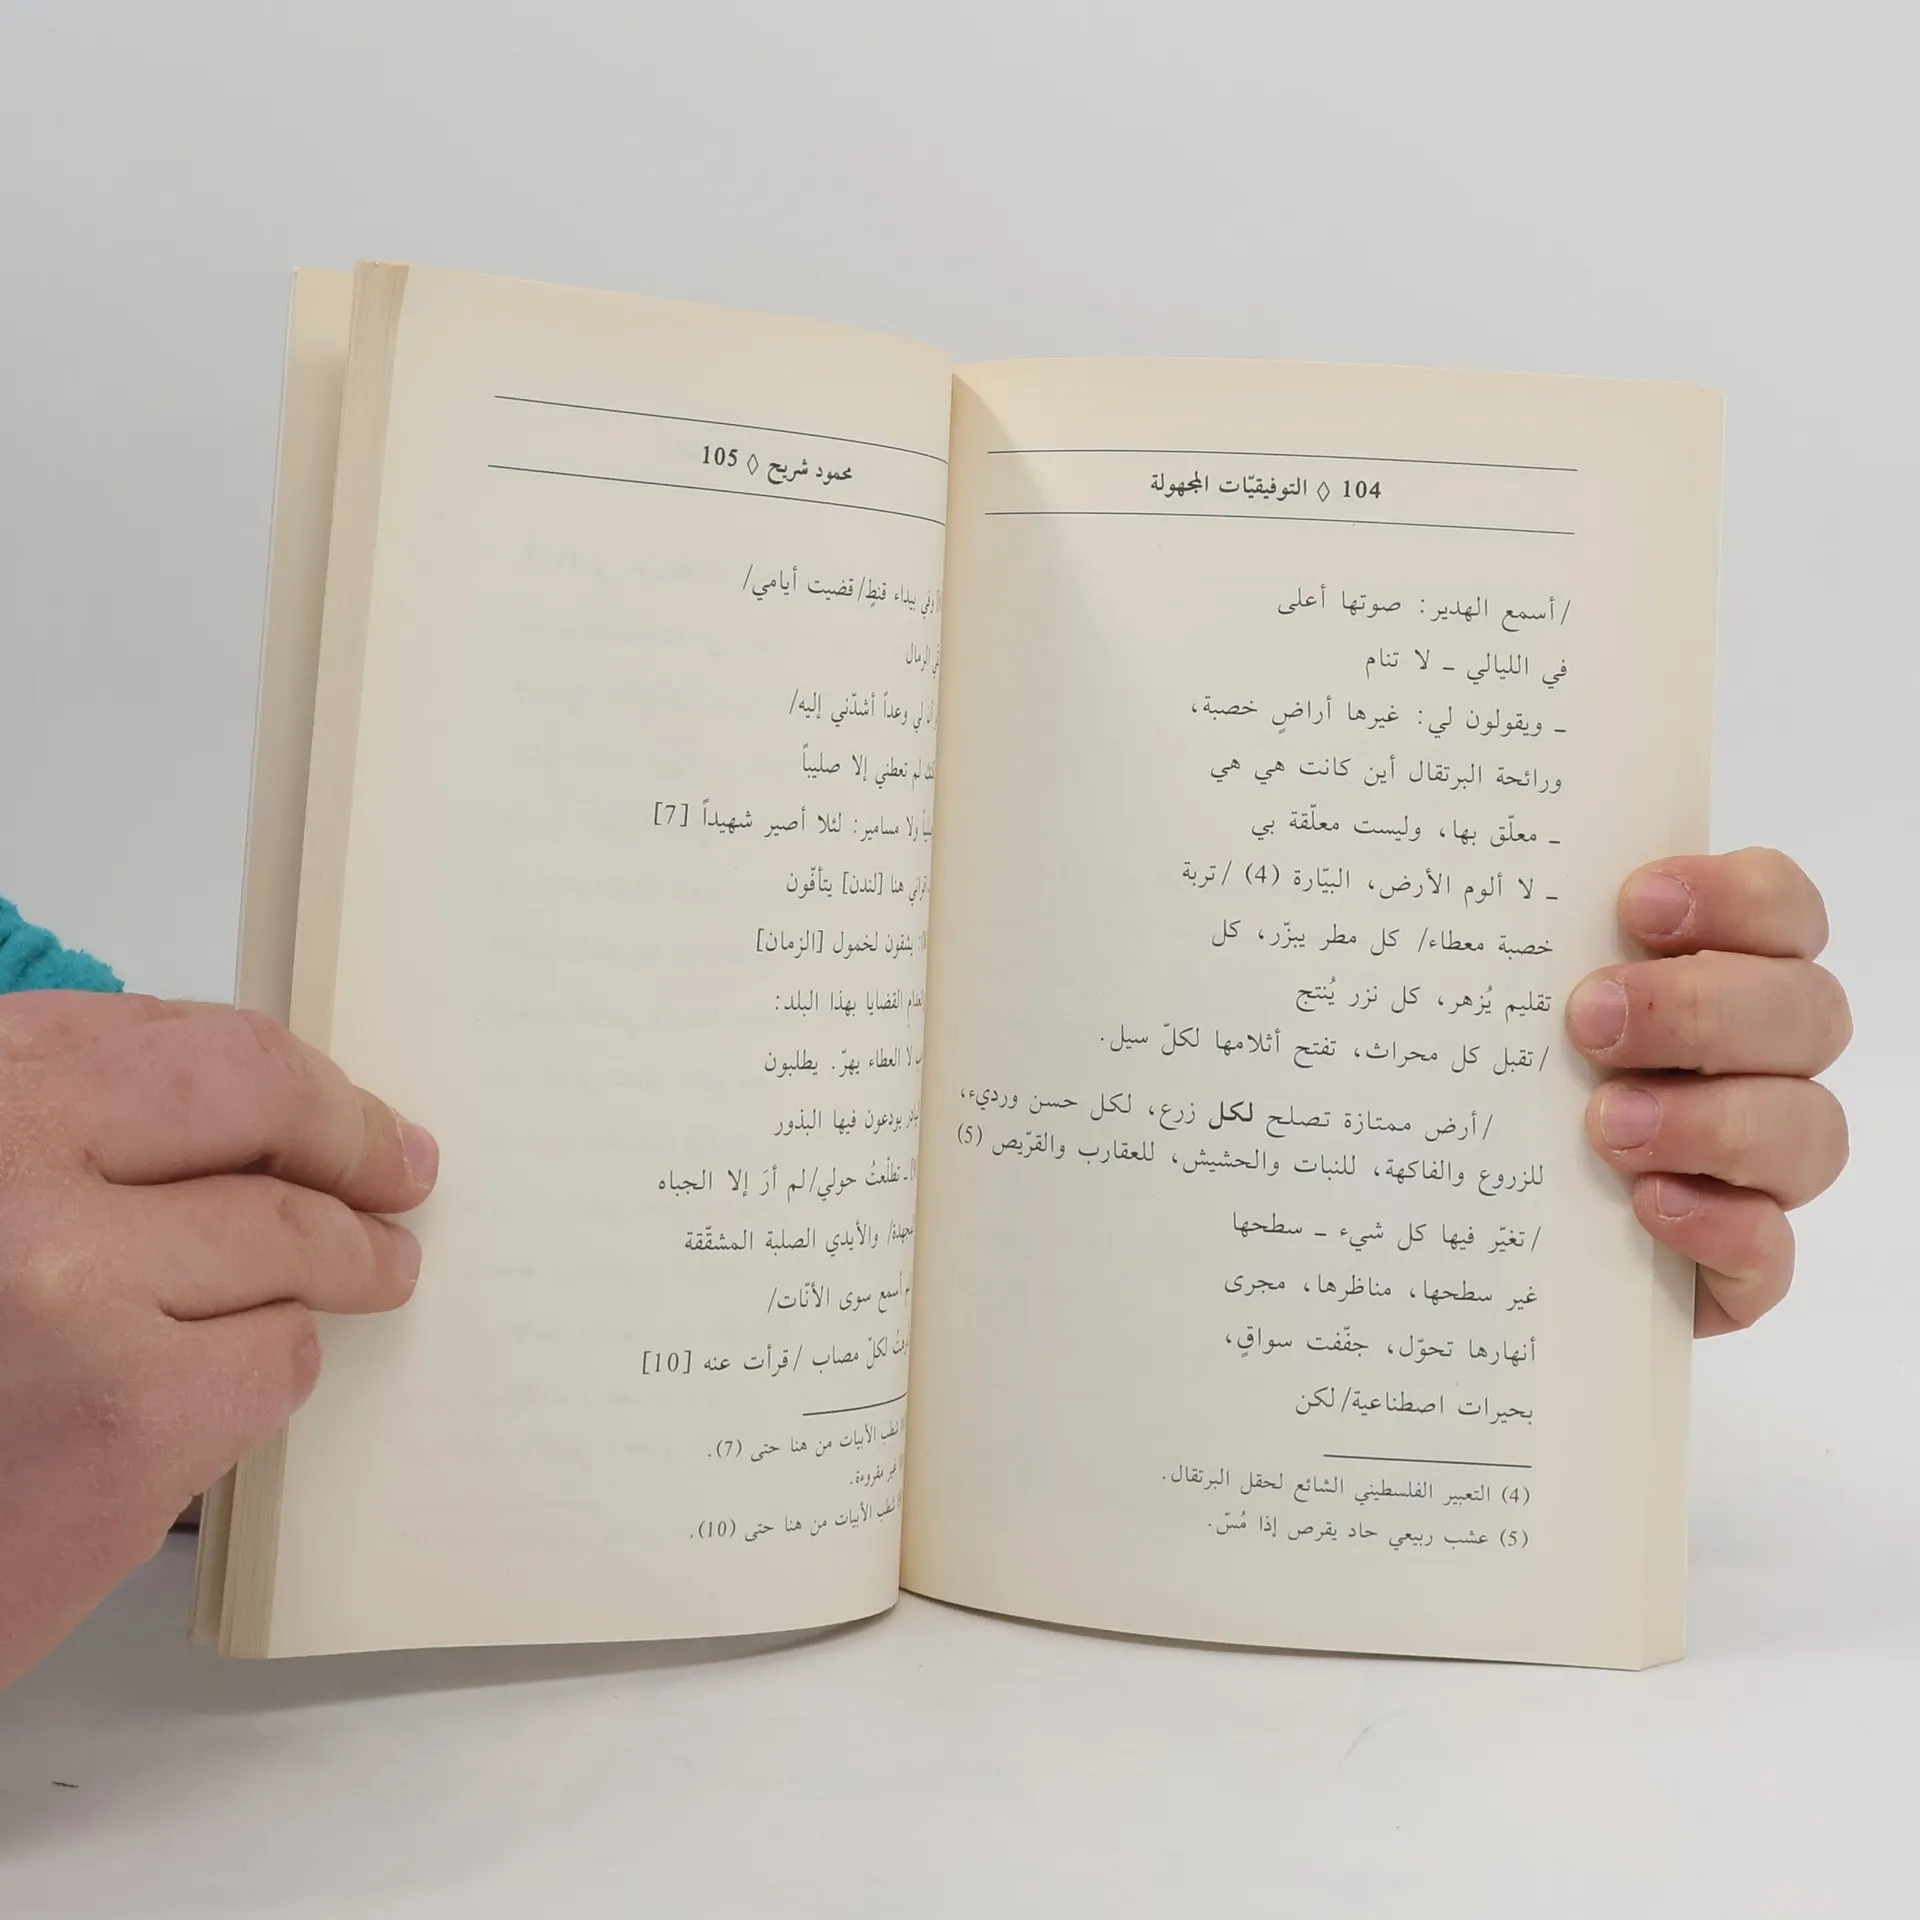 104 ◊ التوفيقيّات المجهولة
/أسمع الهدير: صوتها أعلى
في الليالي – لا تنام
– ويقولون لي: غيرها أراضٍ خصبة،
ورائحة البرتقال أين كانت هي هي
– معلّق بها، وليست معلّقة بي
– لا ألوم الأرض، البيّارة (4) /تربة
خصبة معطاء/ كل مطر يبزّر، كل
تقليم يُزهر، كل نزر يُنتج
/تقبل كل محراث، تفتح أثلامها لكلّ سيل.
/أرض ممتازة تصلح لكل زرع، لكل حسن ورديء،
للزروع والفاكهة، للنبات والحشيش، للعقارب والقرّيص (5)
/تغيّر فيها كل شيء – سطحها
غير سطحها، مناظرها، مجرى
أنهارها تحوّل، جفّفت سواقٍ،
بحيرات اصطناعية/لكن
(4) التعبير الفلسطيني الشائع لحقل البرتقال.
(5) عشب ربيعي حاد يقرص إذا مُسّ.
محمود شريح ◊ 105
وفي بيداء قنطٍ/قضيت أيامي/
الرمال
لي وعداً أشدّني إليه/
لم تعطني إلا صليباً
ولا مسامير: لئلا أصير شهيداً [7]
هنا [لندن] يتأفّون
يشقون لخمول [الزمان]
القضايا بهذا البلد:
لا العطاء يهرّ. يطلبون
يودعون فيها البذور
– تطلّعتُ حولي/لم أرَ إلا الجباه
والأيدي الصلبة المشقّقة
أسمع سوى الأنّات/
لكلّ مصاب /قرأت عنه [10]
شطب الأبيات من هنا حتى (7).
غير مقروءة.
شطب الأبيات من هنا حتى (10).